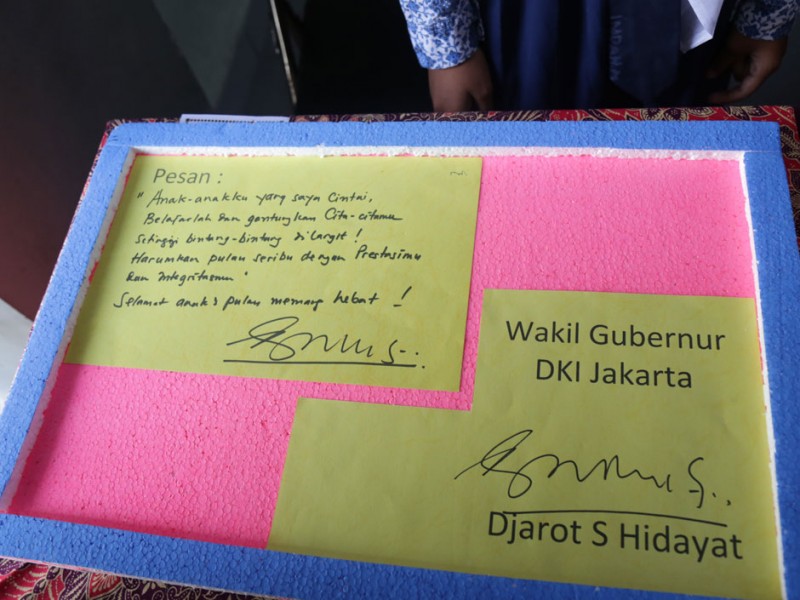 Pesan :
" Anak-anakku yang saya Cintai,
Belajarlah dan gantungkan Cita-citamu
setinggi bintang-bintang di langit !
Harumkan pulau seribu dengan Prestasimu
dan integritasmu "
Selamat anak2 pulau memang hebat !
Wakil Gubernur
DKI Jakarta
Djarot S Hidayat